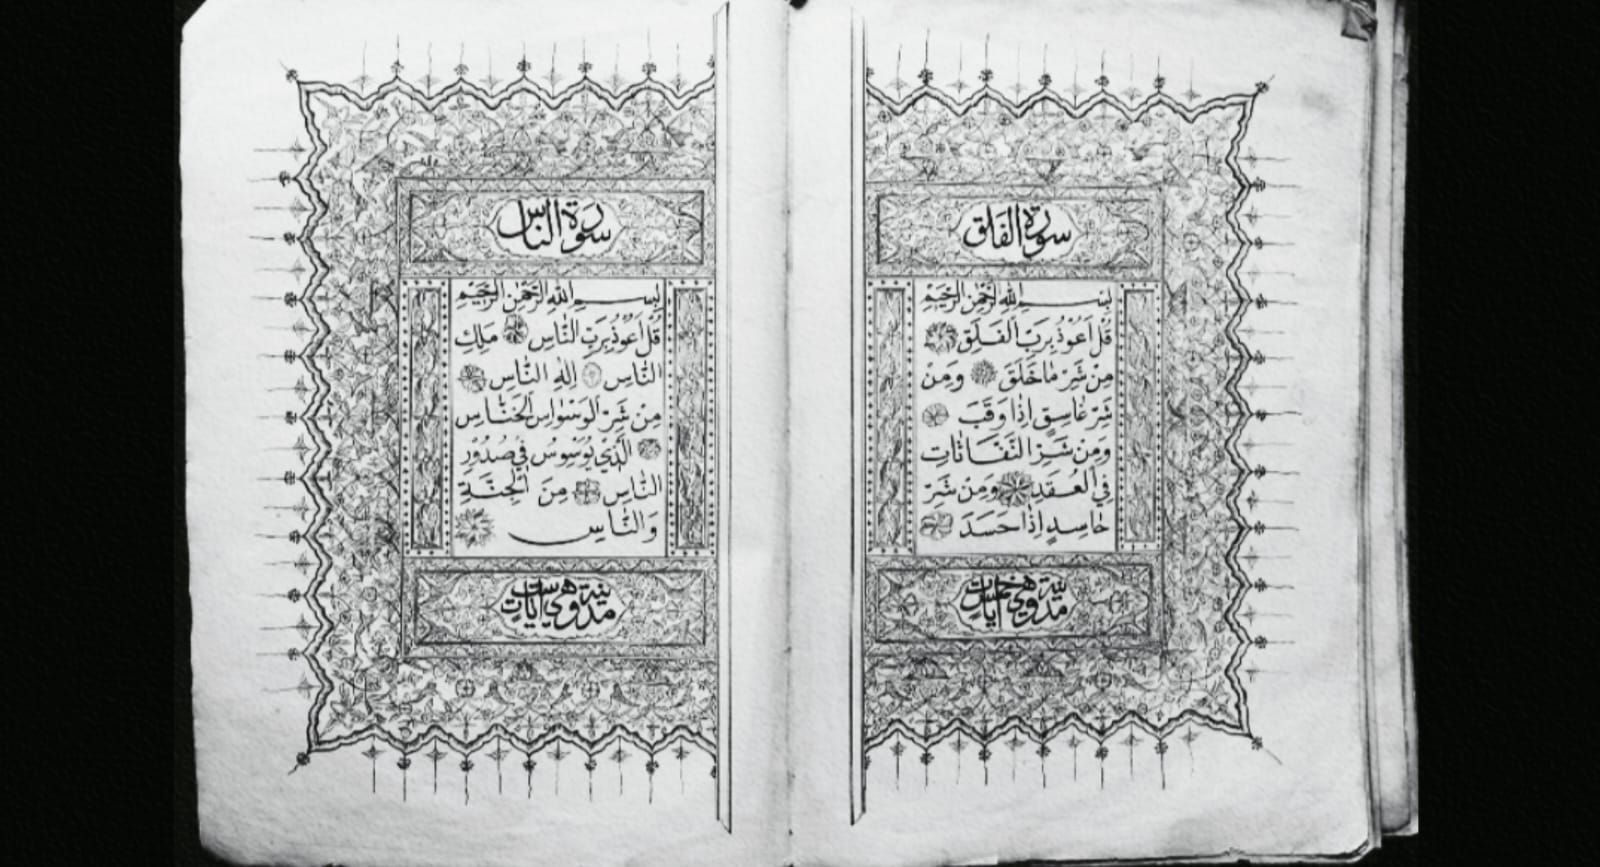 سورة الفلق
بِسْمِ اللهِ الرَّحْمٰنِ الرَّحِيْمِ
قُلْ اَعُوْذُ بِرَبِّ الْفَلَقِ
مِنْ شَرِّ مَا خَلَقَ وَمِنْ
شَرِّ غَاسِقٍ اِذَا وَقَبَ
وَمِنْ شَرِّ النَّفَّاثَاتِ
فِي الْعُقَدِ وَمِنْ شَرِّ
حَاسِدٍ اِذَا حَسَدَ
مدنية وهي خمس آيات
سورة الناس
بِسْمِ اللهِ الرَّحْمٰنِ الرَّحِيْمِ
قُلْ اَعُوْذُ بِرَبِّ النَّاسِ مَلِكِ
النَّاسِ اِلٰهِ النَّاسِ
مِنْ شَرِّ الْوَسْوَاسِ الْخَنَّاسِ
الَّذِي يُوَسْوِسُ فِي صُدُوْرِ
النَّاسِ مِنَ الْجِنَّةِ
وَالنَّاسِ
مدنية وهي ست آيات